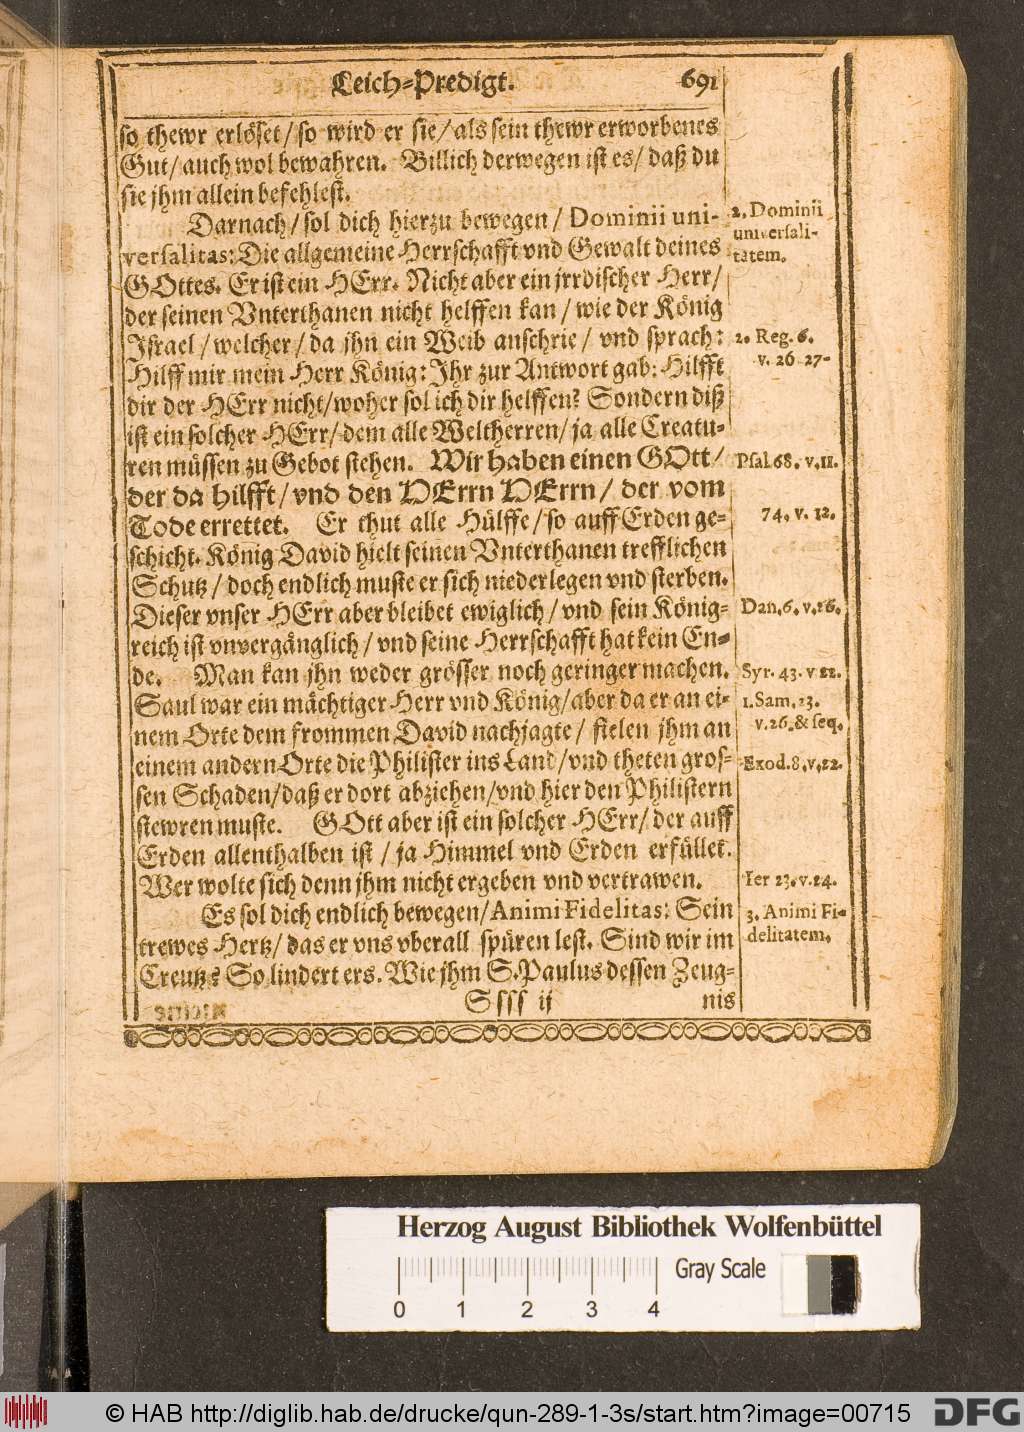 Leich-Predigt. 691
so thewr erlöset/ so wird er sie/ als sein thewr erworbenes
Gut/ auch wol bewahren. Billich derwegen ist es/ daß du
sie jhm allein befehlest.
Darnach/ sol dich hierzu bewegen/ Dominii uni-
versalitas: Die allgemeine Herrschafft vnd Gewalt deines
GOttes. Er ist ein HErr. Nicht aber ein jrrdischer Herr/
der seinen Vnterthanen nicht helffen kan/ wie der König
Israel/ welcher/ da jhn ein Weib anschrie/ vnd sprach:
Hilff mir mein Herr König: Ihr zur Antwort gab: Hilfft
dir der HErr nicht/ woher sol ich dir helffen? Sondern diß
ist ein solcher HErr/ dem alle Weltherren/ ja alle Creatu-
ren müssen zu Gebot stehen. Wir haben einen GOtt/
der da hilfft/ vnd den HErrn HErrn/ der vom
Tode errettet. Er thut alle Hülffe/ so auff Erden ge-
schicht. König David hielt seinen Vnterthanen trefflichen
Schutz/ doch endlich muste er sich niederlegen vnd sterben.
Dieser vnser HErr aber bleibet ewiglich/ vnd sein König-
reich ist vnvergänglich/ vnd seine Herrschafft hat kein En-
de. Man kan jhn weder grösser noch geringer machen.
Saul war ein mächtiger Herr vnd König/ aber da er an ei-
nem Orte dem frommen David nachjagte/ fielen jhm an
einem andern Orte die Philister ins Land/ vnd theten gros-
sen Schaden/ daß er dort abziehen/ vnd hier den Philistern
stewren muste. GOtt aber ist ein solcher HErr/ der auff
Erden allenthalben ist/ ja Himmel vnd Erden erfüllet.
Wer wolte sich denn jhm nicht ergeben vnd vertrawen.
Es sol dich endlich bewegen/ Animi Fidelitas: Sein
trewes Hertz/ das er vns vberall spüren lest. Sind wir im
Creutz? So lindert ers. Wie jhm S. Paulus dessen Zeug-
Ssss ij nis
2. Dominii
universali-
tatem.
2. Reg. 6.
v. 26 27-
Psal 68. v. 11.
74. v. 12.
Dan. 6. v. 26.
Syr. 43. v 22.
1. Sam. 23.
v. 26. & seq.
Exod. 8. v. 22.
Ier 23. v. 24.
3. Animi Fi-
delitatem.
Herzog August Bibliothek Wolfenbüttel
Gray Scale
0 1 2 3 4
© HAB http://diglib.hab.de/drucke/qun-289-1-3s/start.htm?image=00715
DFG